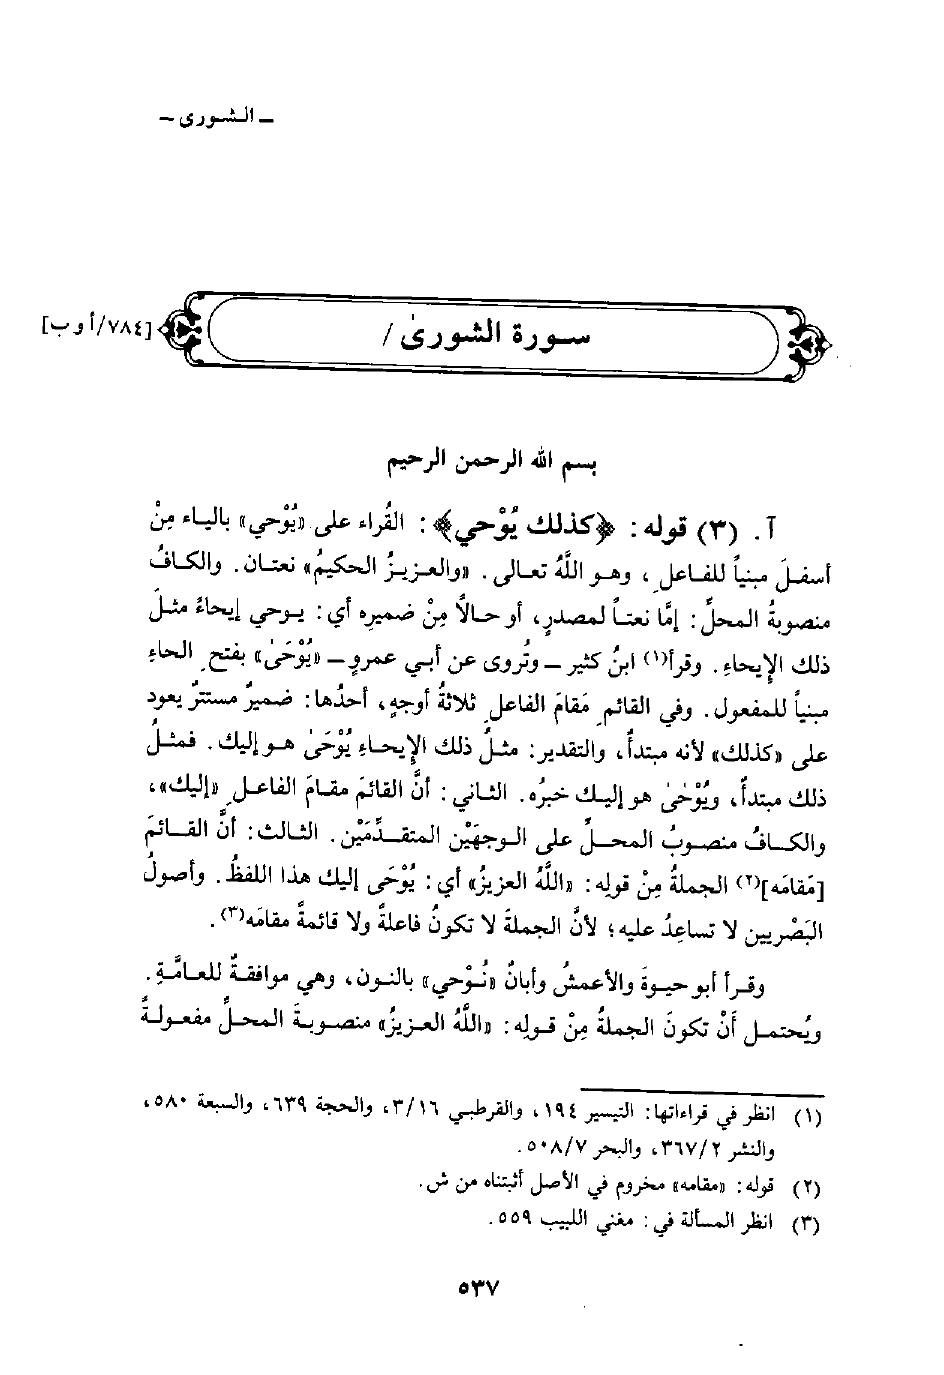 ـ الشورى ـ
سورة الشورىٰ /
[٧٨٤/أ و ب]
بسم الله الرحمن الرحيم
آ. (٣) قوله: ﴿كذلك يُوْحي﴾: القُراء على «يُوْحي» بالياء مِنْ
أسفلَ مبنياً للفاعلِ، وهو اللَّهُ تعالى. «والعزيزُ الحكيمُ» نعتان. والكافُ
منصوبةُ المحلِّ: إمَّا نعتاً لمصدرٍ، أو حالاً مِنْ ضميرِه أي: يوحي إيحاءً مثلَ
ذلك الإِيحاءِ. وقرأ(١) ابنُ كثير ـ وتُروى عن أبي عمروٍ ـ «يُوْحَىٰ» بفتح الحاءِ
مبنياً للمفعول. وفي القائمِ مَقامَ الفاعلِ ثلاثةُ أوجهٍ، أحدُها: ضميرٌ مستترٌ يعود
على «كذلك» لأنه مبتدأٌ، والتقدير: مثلُ ذلك الإِيحاءِ يُوْحَىٰ هو إليك. فمثلُ
ذلك مبتدأٌ، ويُوْحَىٰ هو إليك خبرُه. الثاني: أنَّ القائمَ مقامَ الفاعلِ «إليك»،
والكافُ منصوبُ المحلِّ على الوجهَيْن المتقدِّمَيْن. الثالث: أنَّ القائمَ
[مَقامَه](٢) الجملةُ مِنْ قولِه: «اللَّهُ العزيزُ» أي: يُوْحَى إليك هذا اللفظُ. وأصولُ
البَصْريين لا تساعِدُ عليه؛ لأنَّ الجملةَ لا تكونُ فاعلةً ولا قائمةً مقامَه(٣).
وقرأ أبو حيوةَ والأعمشُ وأبانٌ «نُوْحي» بالنون، وهي موافقةٌ للعامَّةِ.
ويُحتمل أَنْ تكونَ الجملةُ مِنْ قولِه: «اللَّهُ العزيزُ» منصوبةَ المحلِّ مفعولةً
(١) انظر في قراءاتها: التيسير ١٩٤، والقرطبي ٣/١٦، والحجة ٦٣٩، والسبعة ٥٨٠،
والنشر ٣٦٧/٢، والبحر ٥٠٨/٧.
(٢) قوله: «مقامه» مخروم في الأصل أثبتناه من ش.
(٣) انظر المسألة في: مغني اللبيب ٥٥٩.
٥٣٧